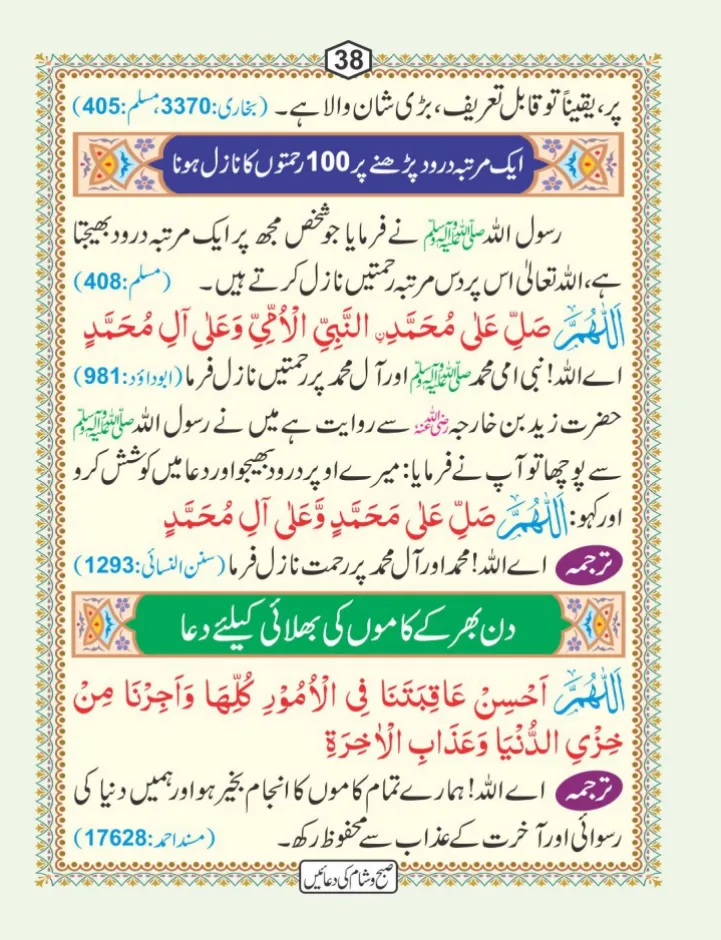 38
پر، یقیناً تو قابل تعریف، بڑی شان والا ہے۔ (بخاری:3370، مسلم:405)
ایک مرتبہ درود پڑھنے پر 100 رحمتوں کا نازل ہونا
رسول اللہ ﷺ نے فرمایا جو شخص مجھ پر ایک مرتبہ درود بھیجتا
ہے، اللہ تعالیٰ اس پر دس مرتبہ رحمتیں نازل کرتے ہیں۔ (مسلم:408)
اَللّٰهُمَّ صَلِّ عَلٰی مُحَمَّدِنِ النَّبِيِّ الْاُمِّيِّ وَعَلٰی آلِ مُحَمَّدٍ
اے اللہ! نبی امی محمد ﷺ اور آل محمد پر رحمتیں نازل فرما (ابوداؤد:981)
حضرت زید بن خارجہ رضی اللہ عنہ سے روایت ہے میں نے رسول اللہ ﷺ
سے پوچھا تو آپ نے فرمایا: میرے اوپر درود بھیجو اور دعا میں کوشش کرو
اور کہو: اَللّٰهُمَّ صَلِّ عَلٰی مَحَمَّدٍ وَّعَلٰی آلِ مُحَمَّدٍ
ترجمہ اے اللہ! محمد اور آل محمد پر رحمت نازل فرما (سنن النسائی:1293)
دن بھر کے کاموں کی بھلائی کیلئے دعا
اَللّٰهُمَّ اَحْسِنْ عَاقِبَتَنَا فِی الْاُمُوْرِ کُلِّهَا وَاَجِرْنَا مِنْ
خِزْیِ الدُّنْیَا وَعَذَابِ الْاٰخِرَةِ
ترجمہ اے اللہ! ہمارے تمام کاموں کا انجام بخیر ہو اور ہمیں دنیا کی
رسوائی اور آخرت کے عذاب سے محفوظ رکھ۔ (مسند احمد:17628)
صبح و شام کی دعائیں